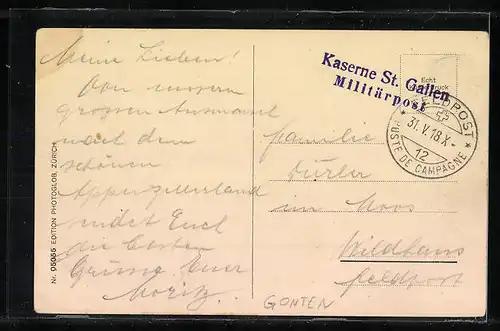 Meine Lieben!
Von unserm
grossen Ausmarsch
nach dem
schönen
Appenzellerland
sendet Euch
die besten
Grüsse Euer
Moritz.
Nr. 05055 EDITION PHOTOGLOB, ZÜRICH
Kaserne St. Gallen
Militärpost
Echt
FELDPOST
31.V.18 X-
12
POSTE DE CAMPAGNE
Familie
Dürler
im Moos
Wildhaus
Feldpost
GONTEN